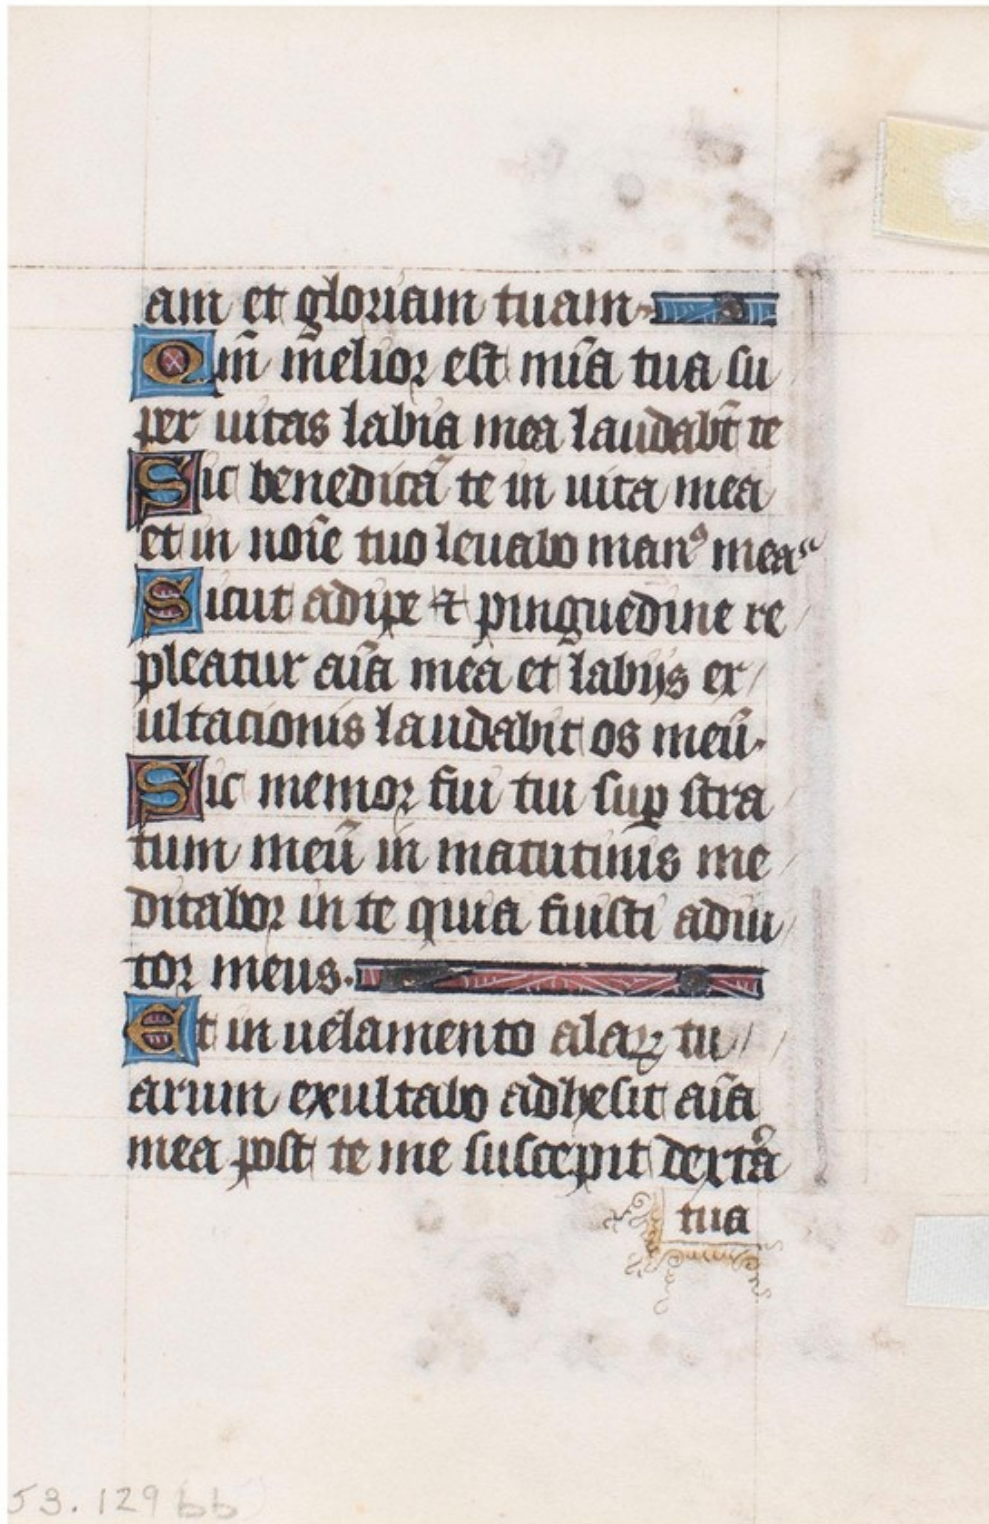 am et gloriam tuam
Qm̄ melior est mīa tua su
per uitas labia mea laudabt̄ te
Sic benedicā te in uita mea
et in noīe tuo leuabo manꝰ meas
Sicut adipe ⁊ pinguedine re
pleatur aīa mea et labijs ex
ultacionis laudabit os meū.
Sic memor fui tui suꝑ stra
tum meū in matutinis me
ditabor in te quia fuisti adiu
tor meus.
Et in uelamento alaꝝ tu
arum exultabo adhesit aīa
mea post te me suscepit dextͣa
tua
53.129 bb